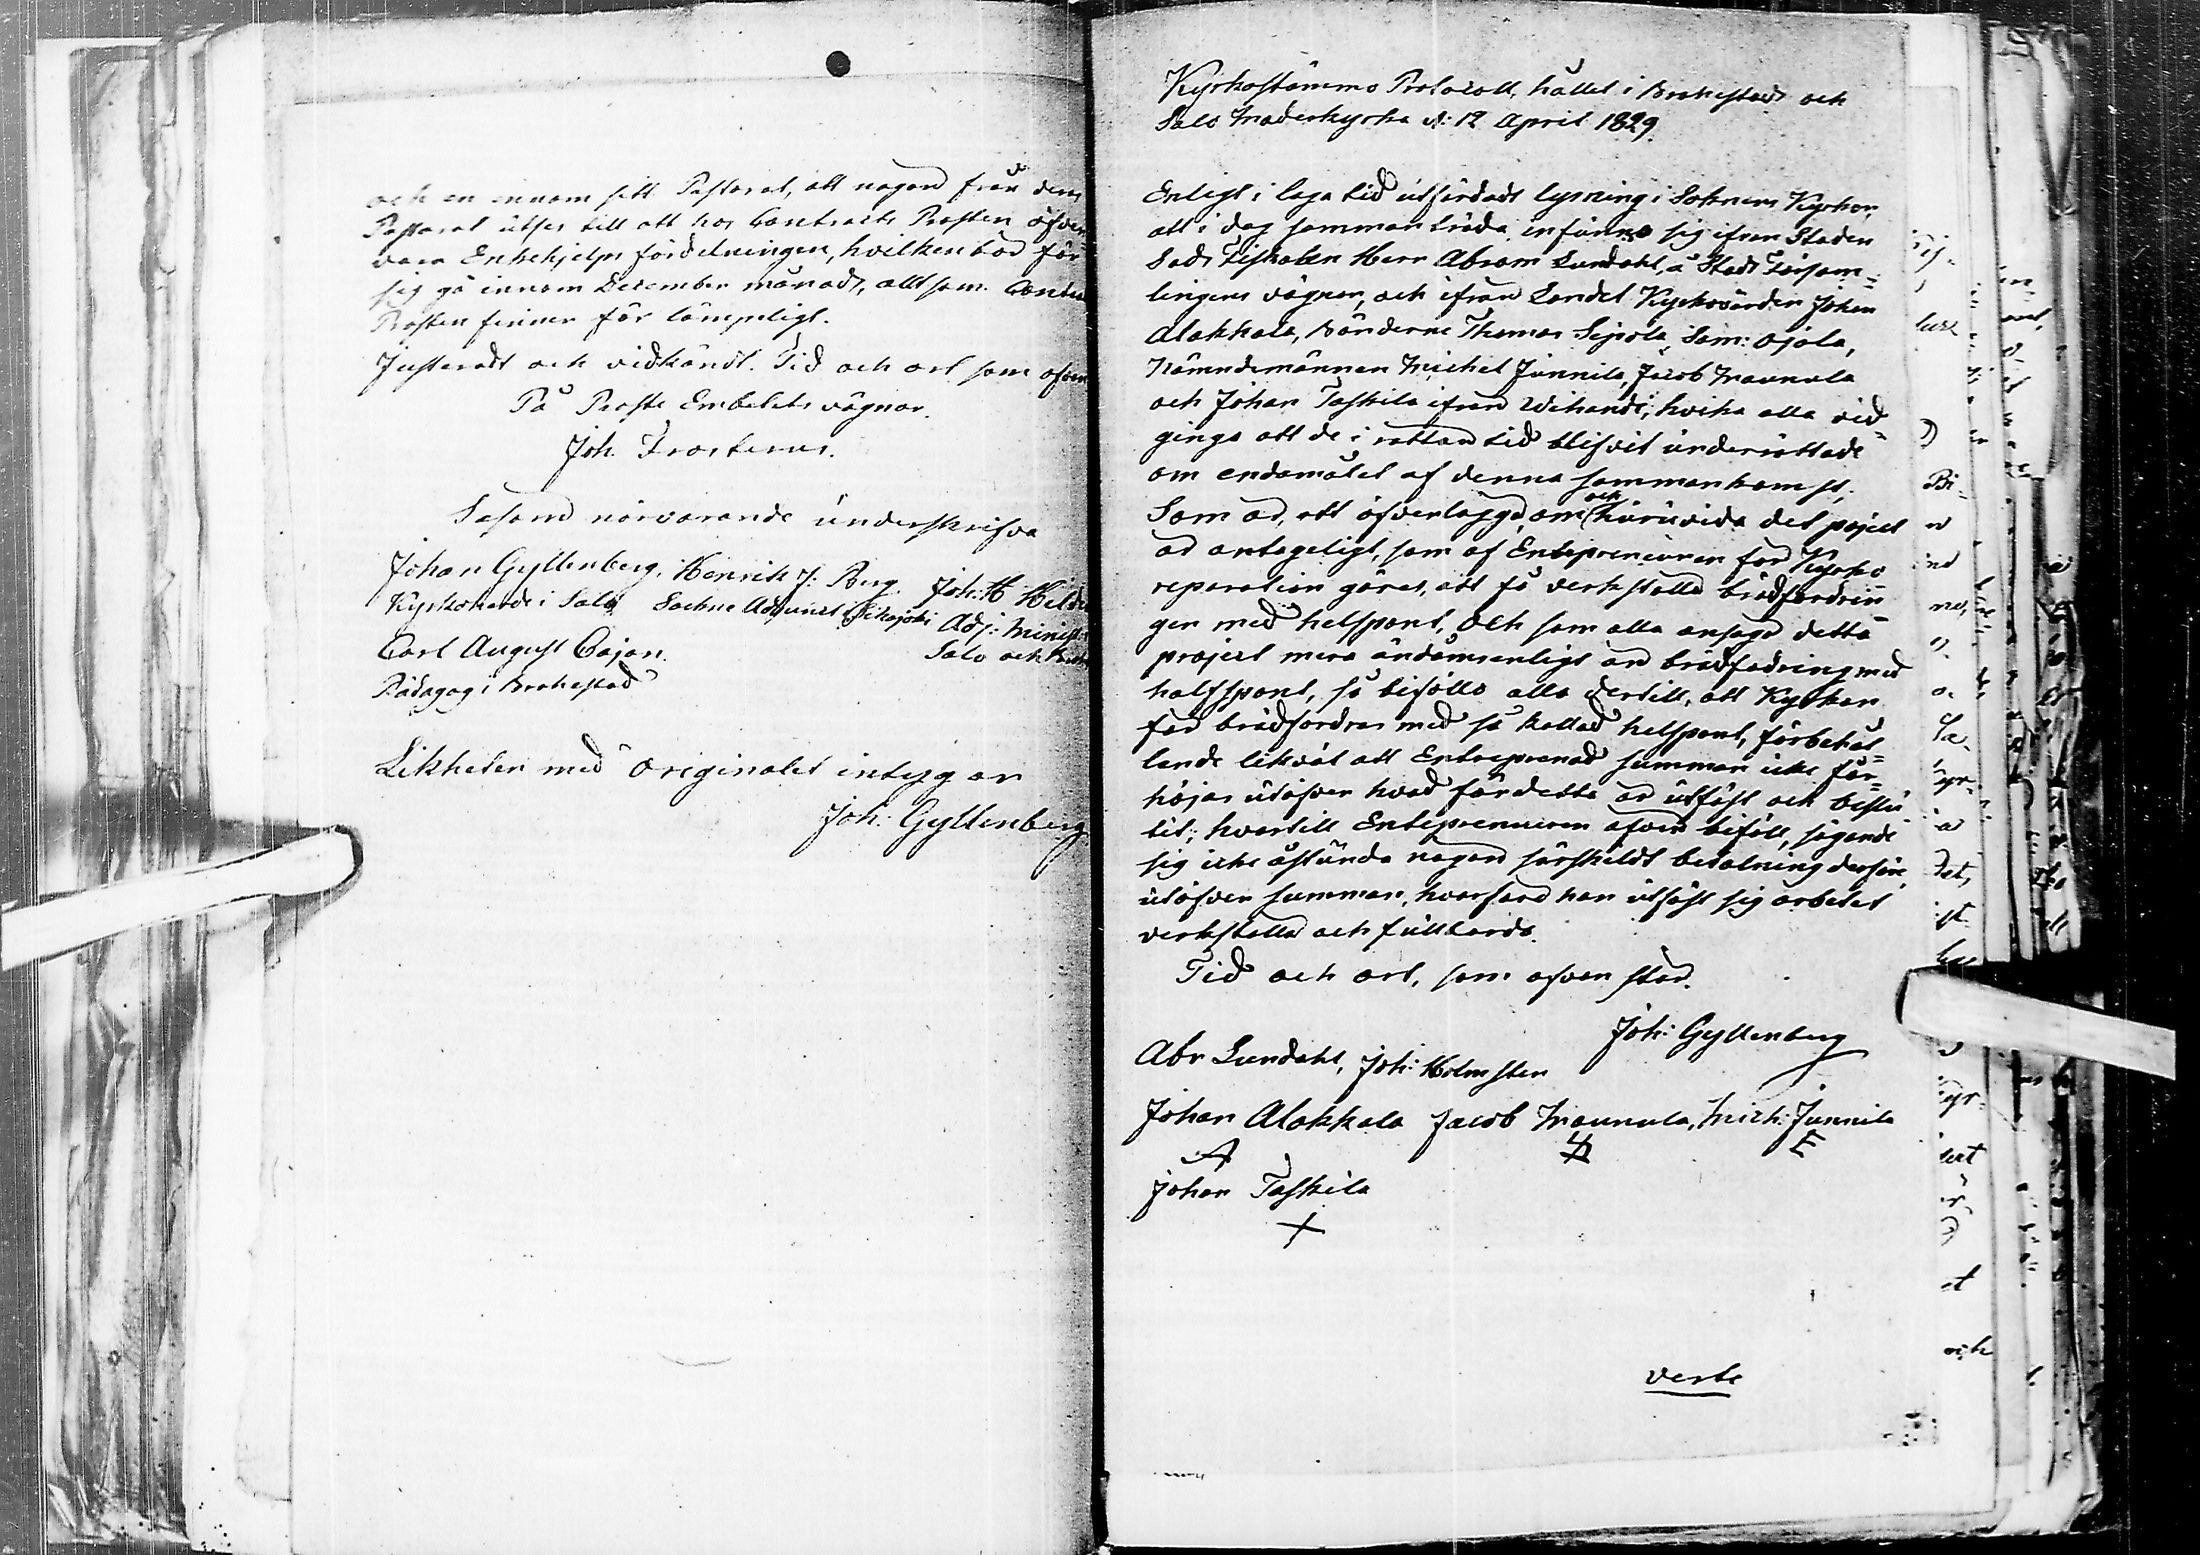 och en innom sitt Pastorat, att någon från deras
Pastorat utses till att hos Contracts Prosten öfver=
vara Enkehjelps fördelningen, hvilken bör för
sig gå innom December månad, allt som Contr
Prosten finner för lämpeligt.
Justeradt och vidkändt. Tid och ort som ofvan
På Proste Embetets vägnar.
Joh. Frosterus.
Såsom närvarande underskrifva
Johan Gyllenberg, Henrik J: Berg Joh: H Hild
Kyrkoherde i Salo Sockne Adjunct i Sikajoki Adj: Minist
Carl August Cajan. Salo och
Pädagog i Brahestad
Likheten med Originalet intygar
Joh: Gyllenberg
Kyrkostämmo Protocoll, hållet i Brahestad och
Salo Moderkyrka d: 12 April 1829.
Enligt i laga tid utfärdadt lysning i Soknens Kyrkor,
att i dag sammanträda, infunno sig ifrån Staden
Stads Fiskalen Herr Abram Lundahl, å Stads Försam=
lingens vägnar, och ifrån Landet Kyrkovärden Johan
Alakkala, Bönderne Thomas Seppola, Sam: Ojala,
Nämndemännen Michel Junnila, Jacob Maunula
och Johan Taskila ifrån Wihandi; hvilka alla vid=
gingo att de i rättan tid blifvit underrättade
om endamålet af denna sammankomst,
Som är, att öfverlägga om och huruvida det project
är antageligt, som af Entreprenören för Kyrko
reparation göres, att få verkställa brädfordrin=
gen med helspont, Och som alla ansågo detta
project mera ändamsenligt än brädfodring med
halfspont, så biföllo alla dertill, att Kyrkan
får brädfordras med så kallad helspont, förbehål=
lande likväl att Entreprenad summan icke för=
höjas utöfver hvad för detta är utfäst och beslu
tit; hvartill Entreprenuren äfven biföll, sägande
sig icke åstunda någon särskildt betalning derföre
utöfver summan, hvarföre han utfäst sig arbetet
verkställa och fullborda.
Tid och ort, som ofvan står.
Joh: Gyllenberg
Abr Lundahl, Joh: Holmsten
Johan Alakkala Jacob Maunula, Mich: Junnila
Johan Taskila
verte